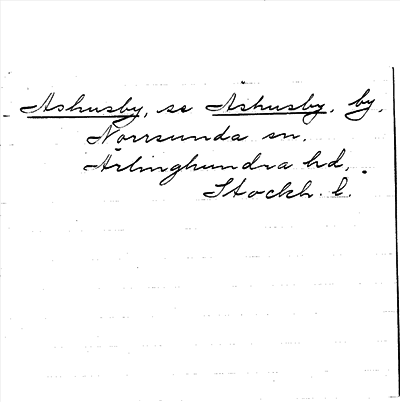 Åshusby, se Åshusby, by,
Norrsunda sn.
Ärlinghundra hd,
Stockh. l.